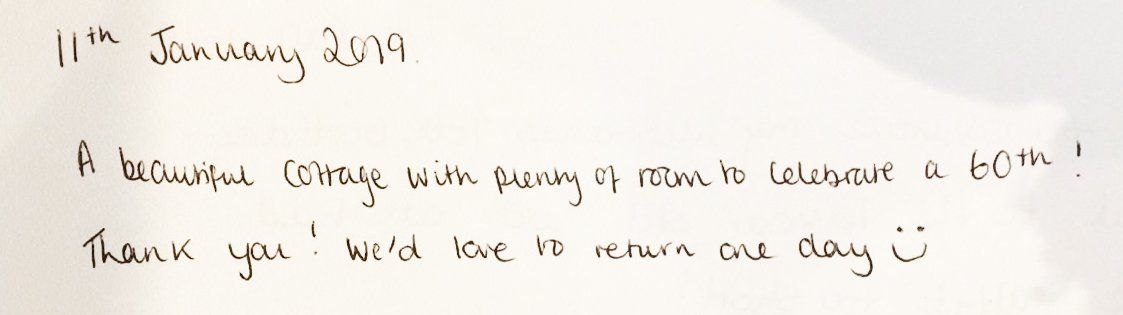 11th January 2019.
A beautiful cottage with plenty of room to celebrate a 60th!
Thank you! We'd love to return one day ☺